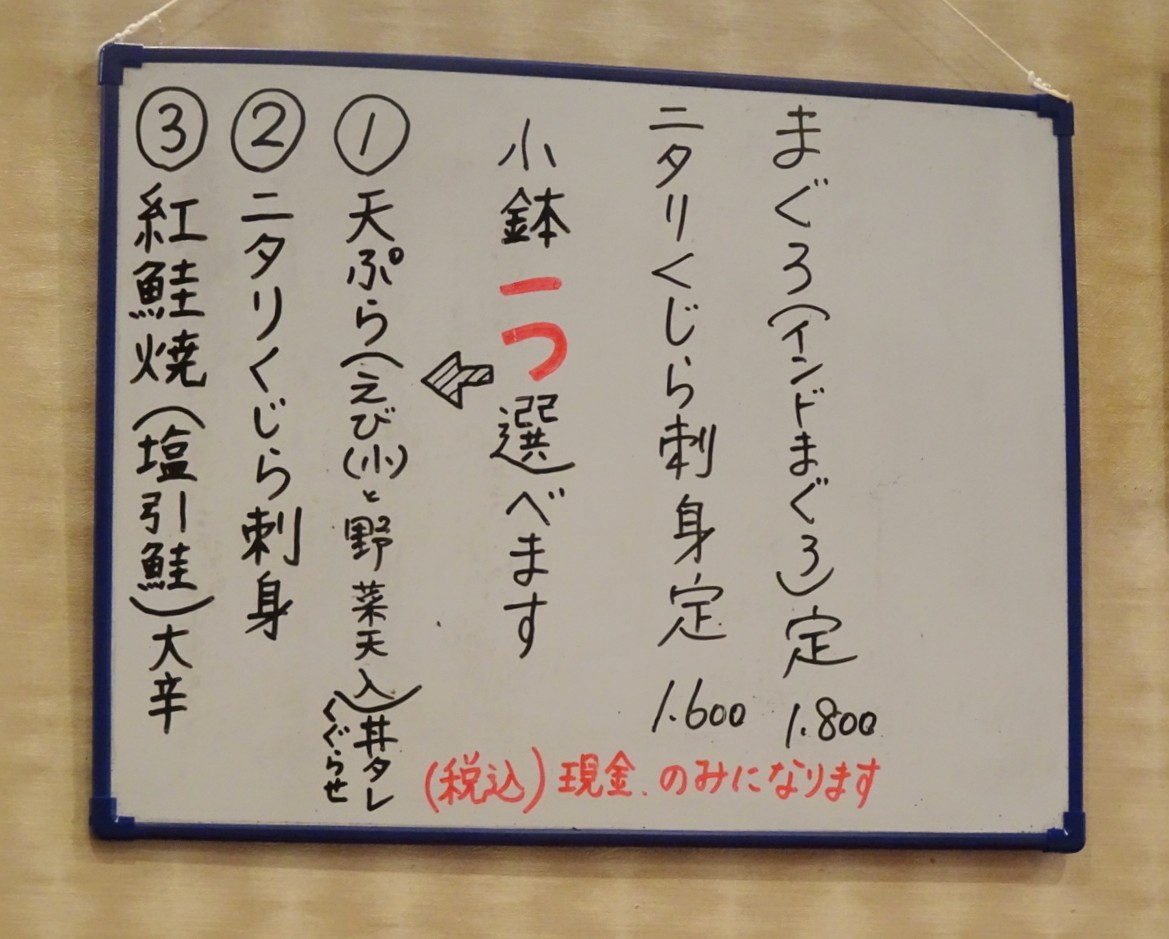 まぐろ(インドまぐろ)定 1.800
ニタリくじら刺身定 1.600
小鉢一つ選べます
①天ぷら(えび(小)と野菜天入)丼タレ
くぐらせ
②ニタリくじら刺身
③紅鮭焼(塩引鮭)大辛
(税込)現金.のみになります